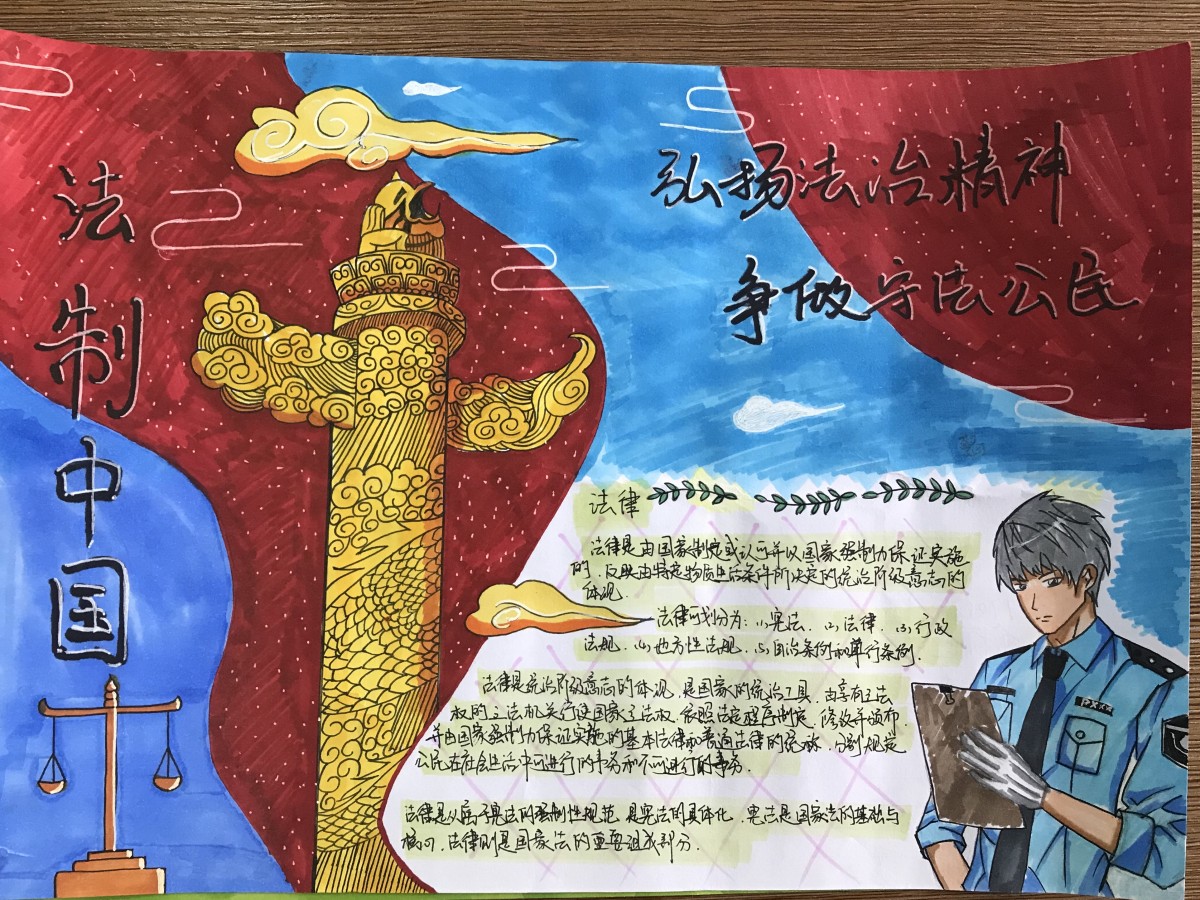 法制中国
弘扬法治精神
争做守法公民
法律
法律是由国家制定或认可并以国家强制力保证实施
的,反映由特定物质生活条件所决定的统治阶级意志的
体现.
法律可划分为:(1)宪法、(2)法律、(3)行政
法规、(4)地方性法规、(5)自治条例和单行条例.
法律是统治阶级意志的体现,是国家的统治工具.由享有立法
权的立法机关行使国家立法权,依照法定程序制定、修改并颁布,
并由国家强制力保证实施的基本法律和普通法律的统称,分别规定
公民在社会生活中可进行的事务和不可进行的事务.
法律是从属于宪法的强制性规范,是宪法的具体化.宪法是国家法的基础与
核心,法律则是国家法的重要组成部分.